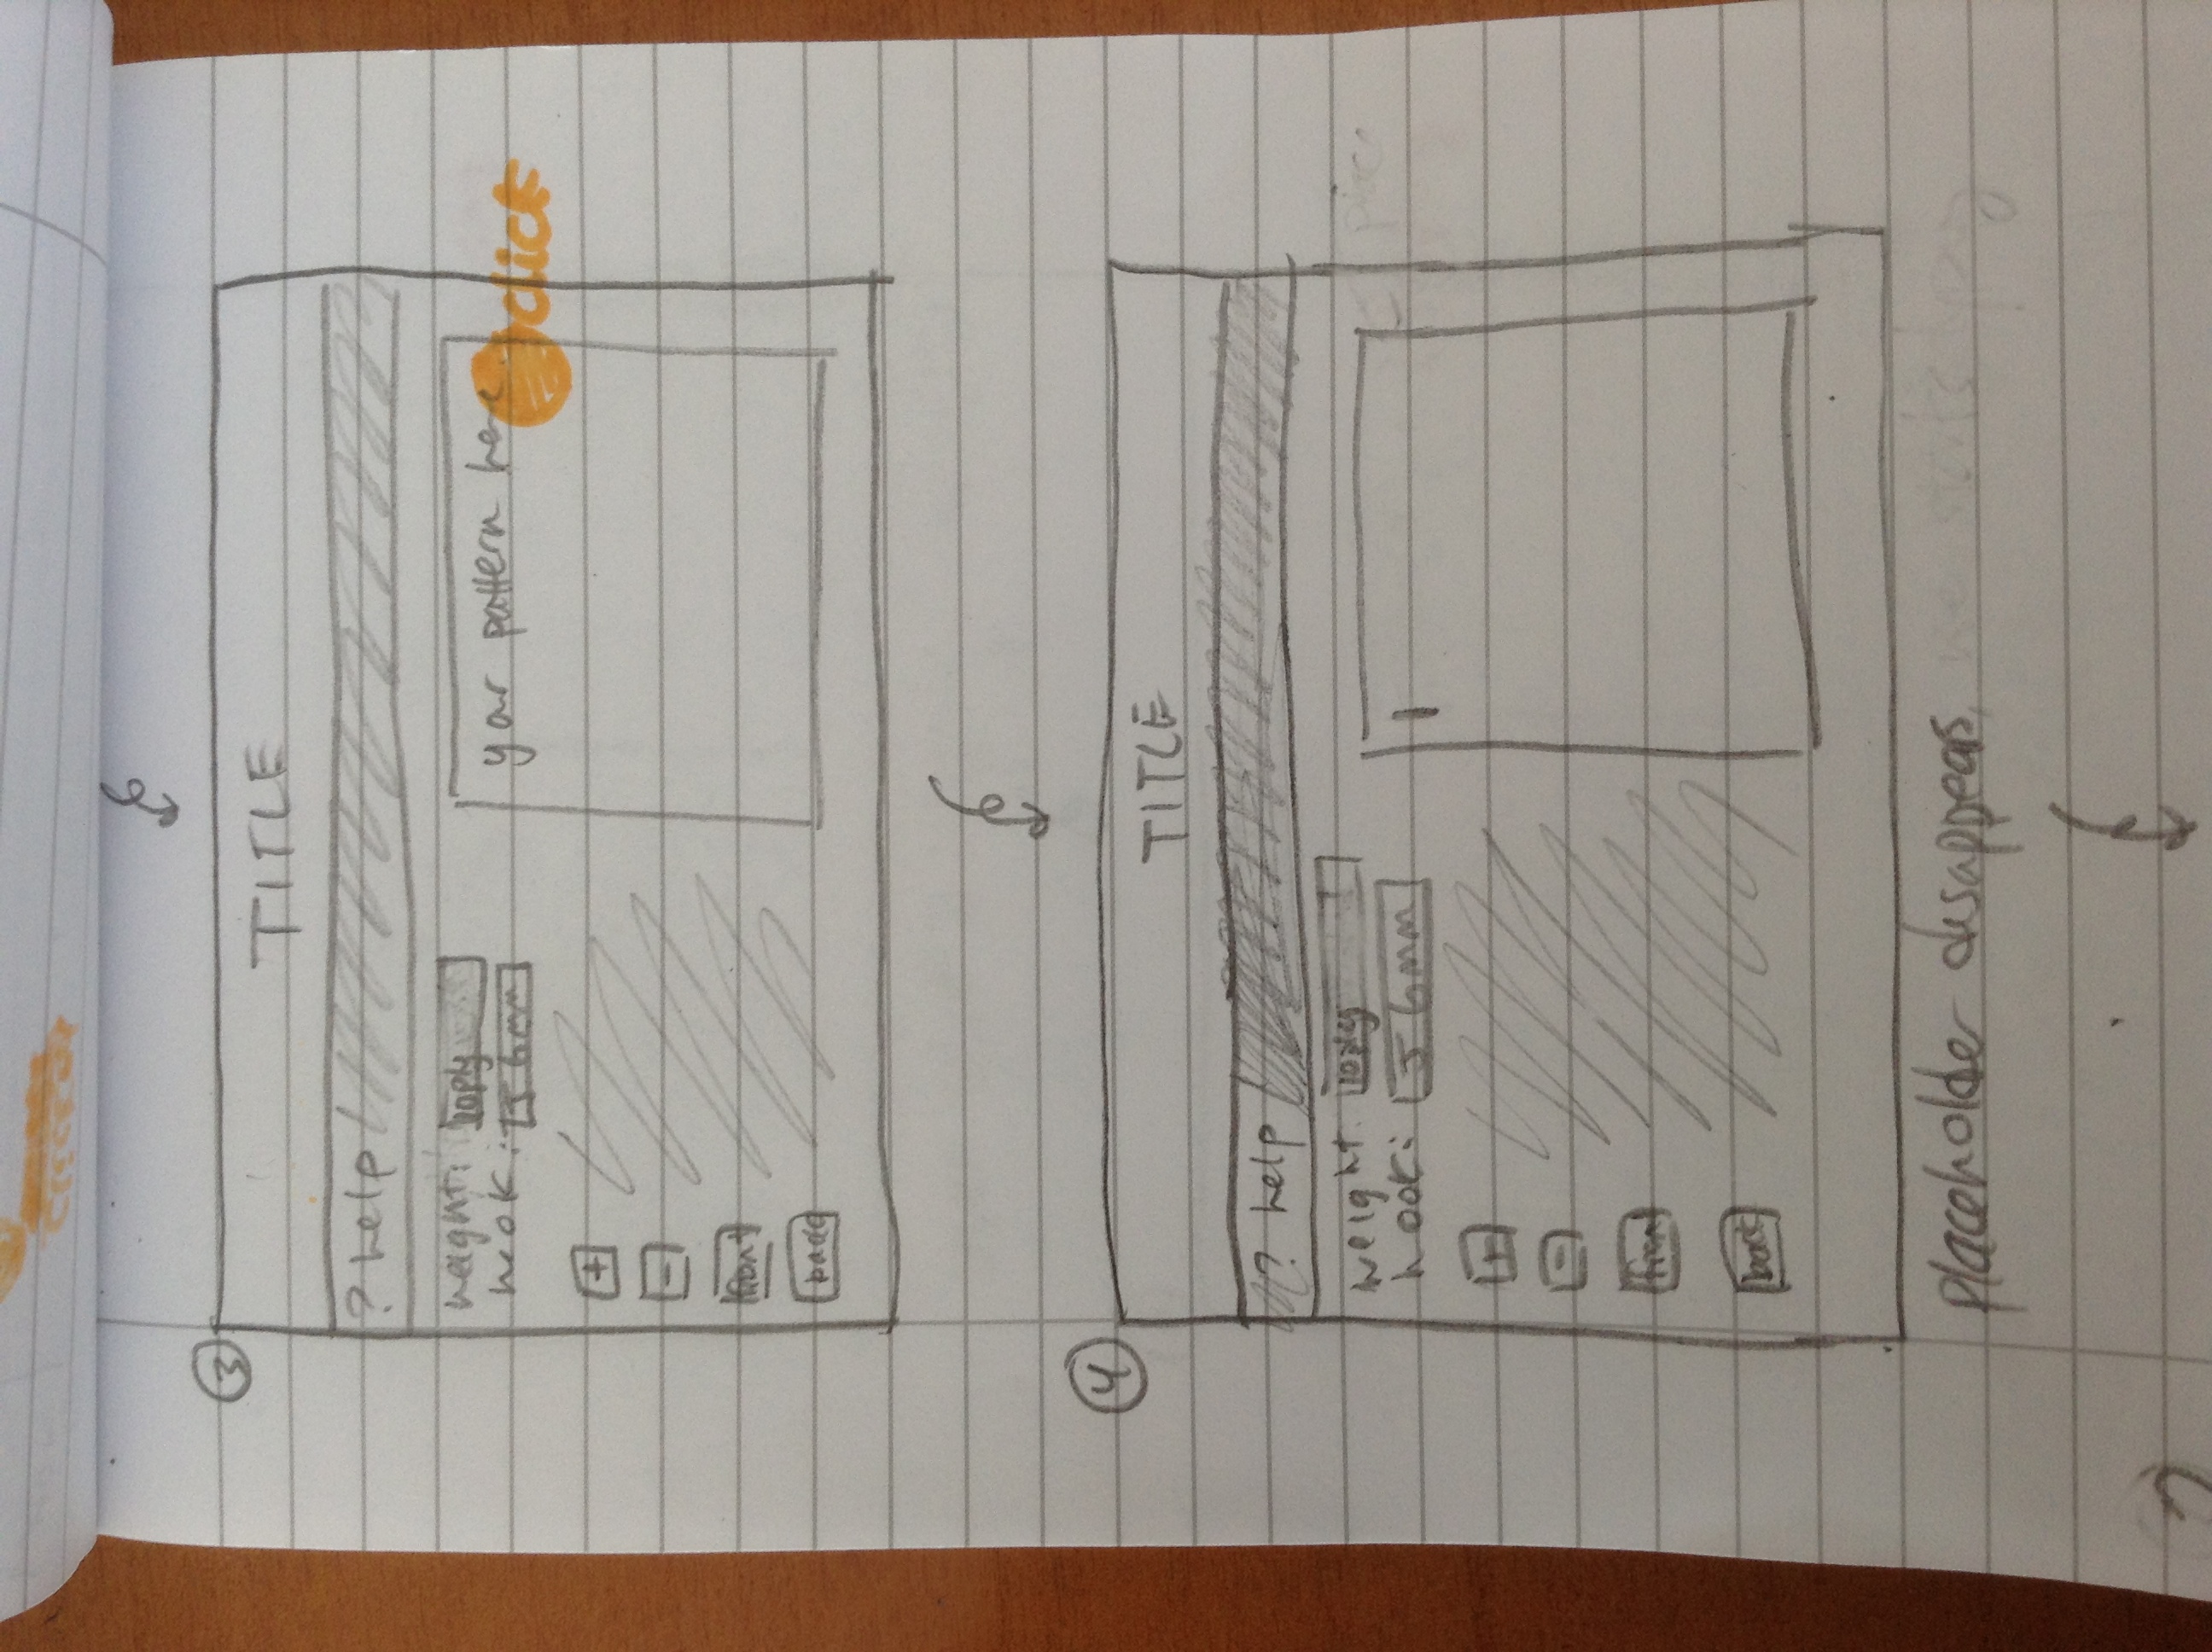 3
TITLE
? help
weight: 10ply
hook: J 6mm
your pattern here.
click
+
-
front
back
4
TITLE
? help
weight: 10ply
hook: J 6mm
+
-
front
back
placeholder disappears,